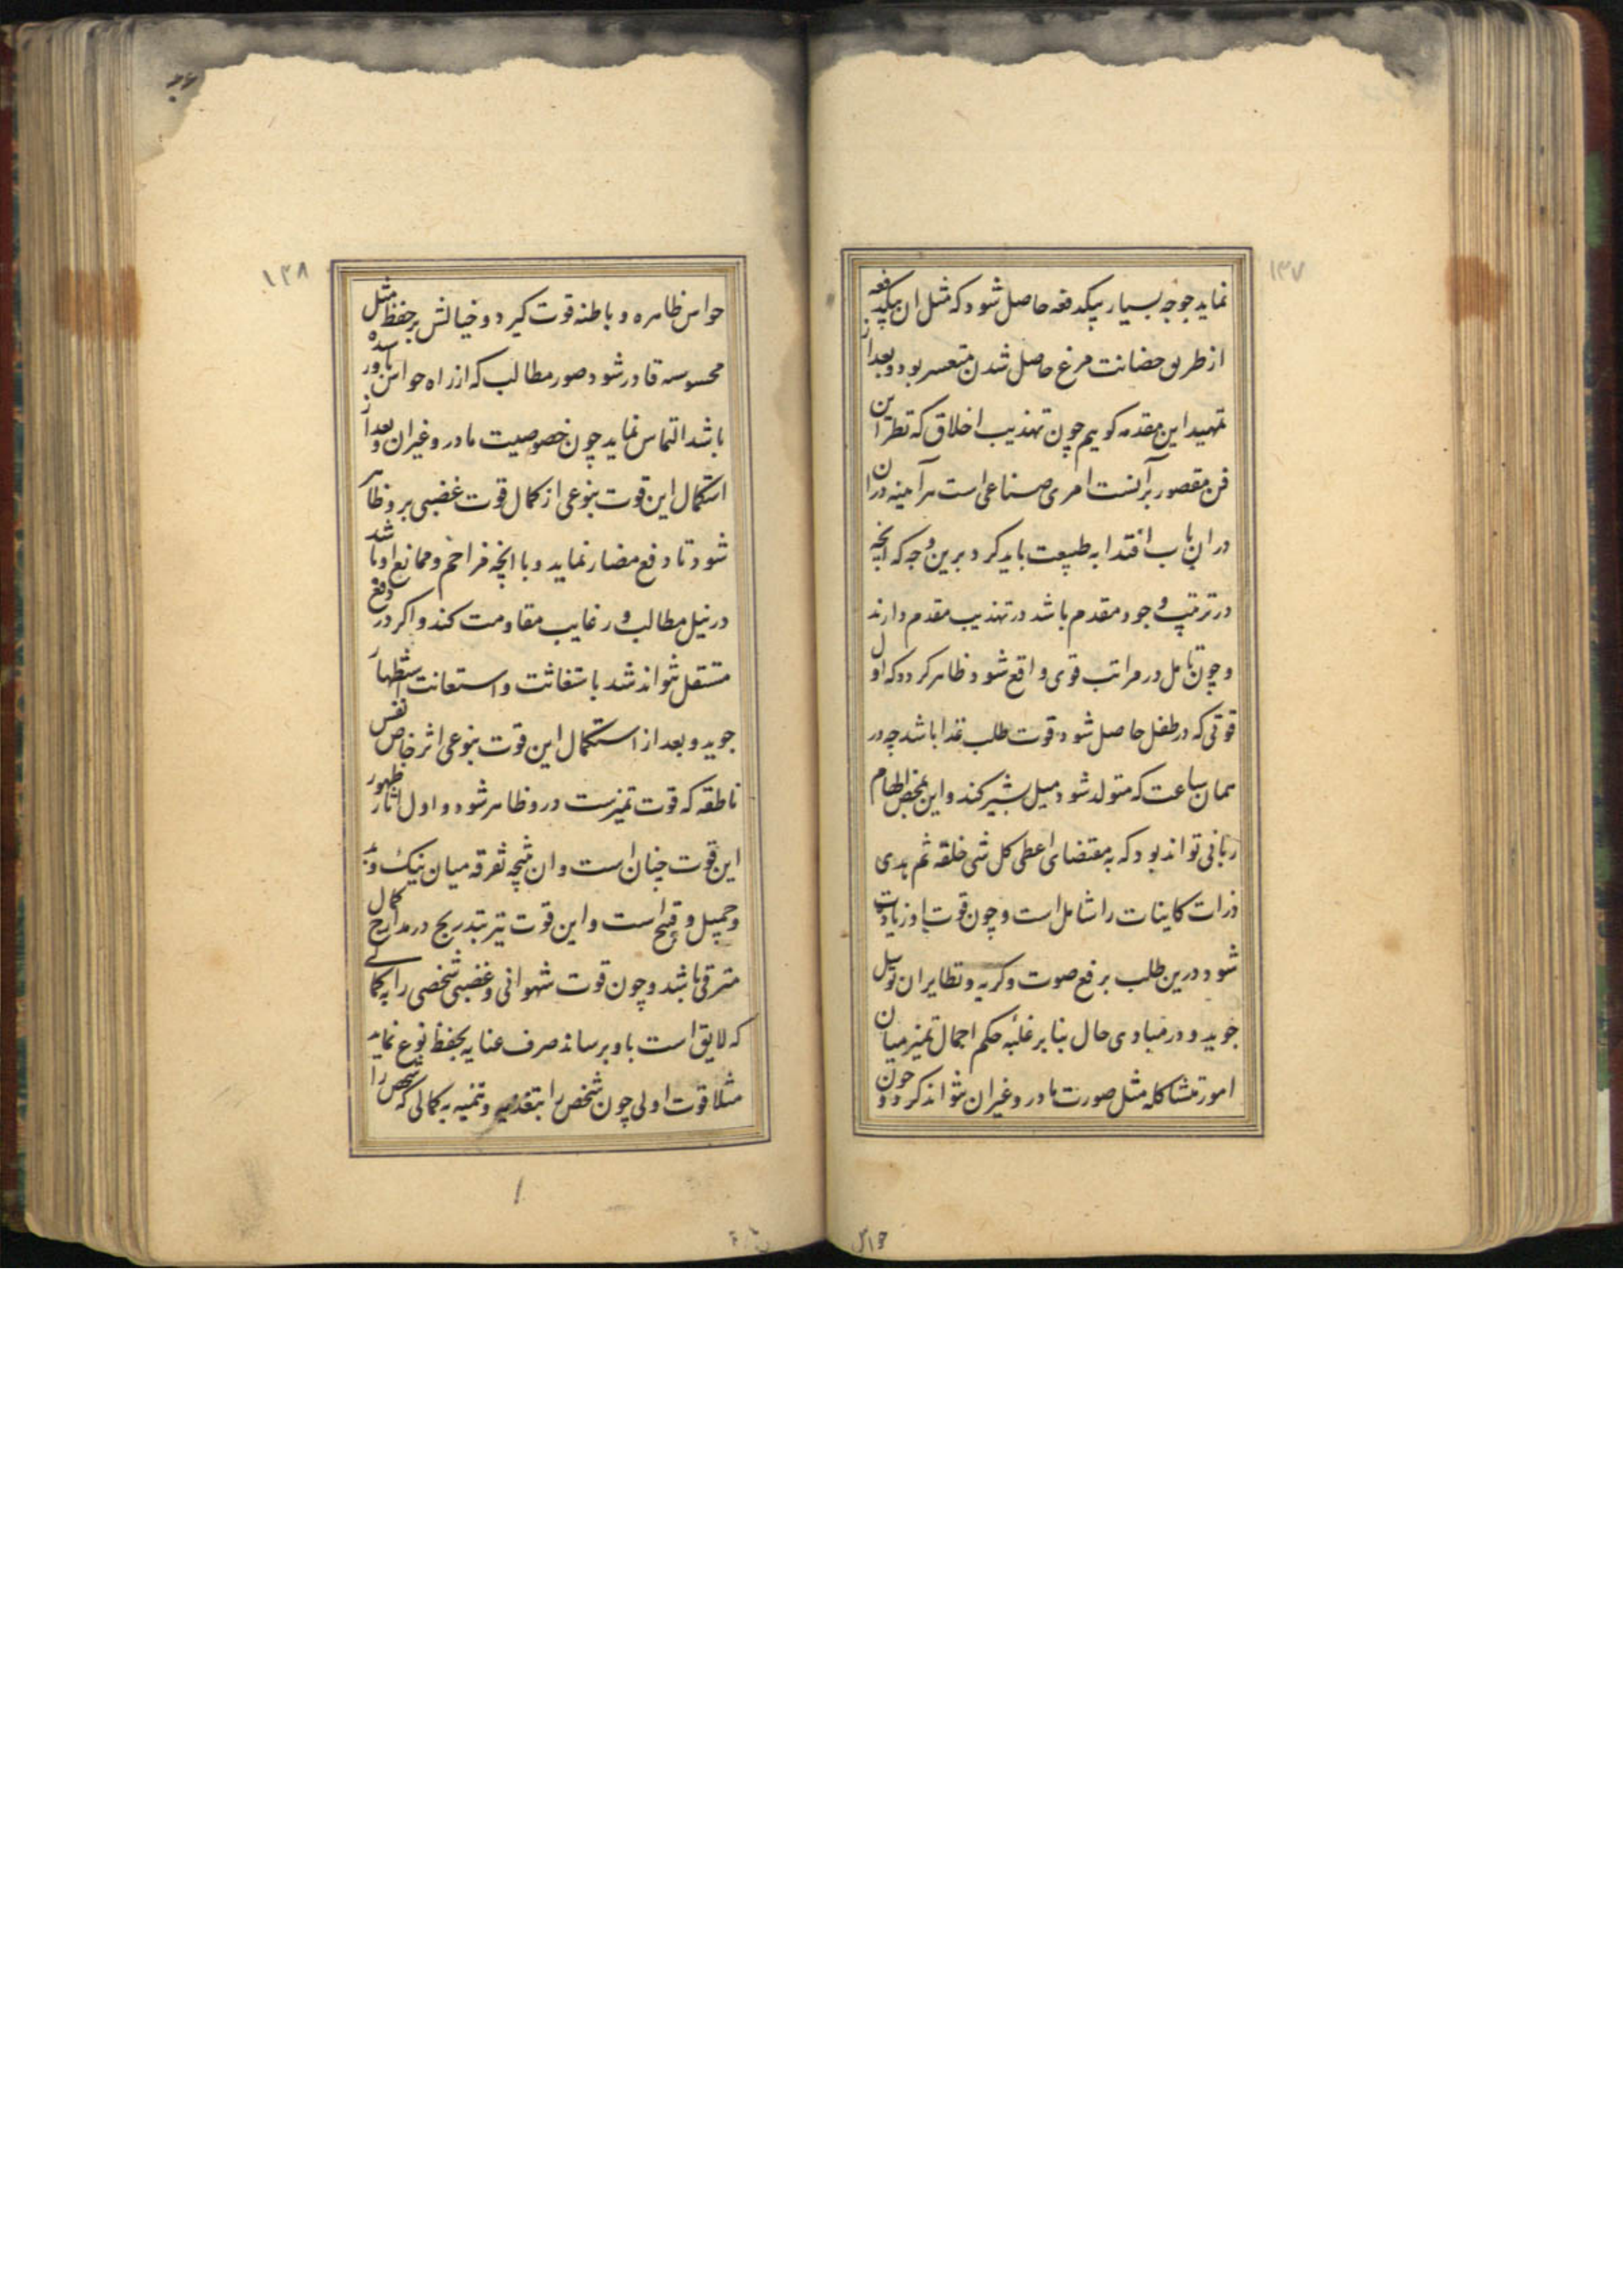 ۱۳۷
نماید جوجه بسیار بیکدفعه حاصل شود که مثل ان بیکدفعه
از طریق حضانت مرغ حاصل شدن متعسر بود و بعد از
تمهید این مقدمه کوییم چون تهذیب اخلاق که نظر این
فن مقصور بر آنست امری صناعی است هر آینه دران
دران باب اقتدا به طبیعت باید کرد برین وجه که انچه
در ترتیب وجود مقدم باشد در تهذیب مقدم دارند
و چون تامل در مراتب قوی واقع شود ظاهر کردد که اول
قوتی که در طفل حاصل شود قوت طلب غذا باشد چه در
همان ساعت که متولد شود میل بشیر کند و این بمحض الهام
ربانی تواند بود که به مقتضای اعطی کل شی خلقه ثم هدی
ذرات کاینات را شامل است و چون قوت او زیادت
شود درین طلب برفع صوت و کریه و نظایر ان توسل
جوید و در مبادی حال بنا بر غلبه حکم اجمال تمیز میان
امور متشاکله مثل صورت مادر و غیر ان نتواند کرد و چون
حواس
۱۳۸
حواس ظاهره و باطنه قوت کیرد و خیالش بر حفظ مثل
محسوسه قادر شود صور مطالب که از راه حواس باو رسیده
باشد التماس نماید چون خصوصیت مادر و غیر ان و بعد از
استکمال این قوت بنوعی از کمال قوت غضبی برو ظاهر
شود تا دفع مضار نماید و با انچه مزاحم و ممانع او باشد
در نیل مطالب و رغایب مقاومت کند و اکر در دفع
مستقل نتواند شد باستغاثت و استعانت استظهار
جوید و بعد از استکمال این قوت بنوعی اثر خاص نفس
ناطقه که قوت تمیزست درو ظاهر شود و اول اثار ظهور
این قوت حیاست و ان نتیجه تفرقه میان نیک و بد
و جمیل و قبیح است و این قوت نیز بتدریج در مدارج کمال
مترقی باشد و چون قوت شهوانی و غضبی شخصی را بکمالی
که لایق است باو برساند صرف عنایه بحفظ نوع نماید
مثلا قوت اولی چون شخص را بتغذیه و تنمیه به کمالی که شخص را